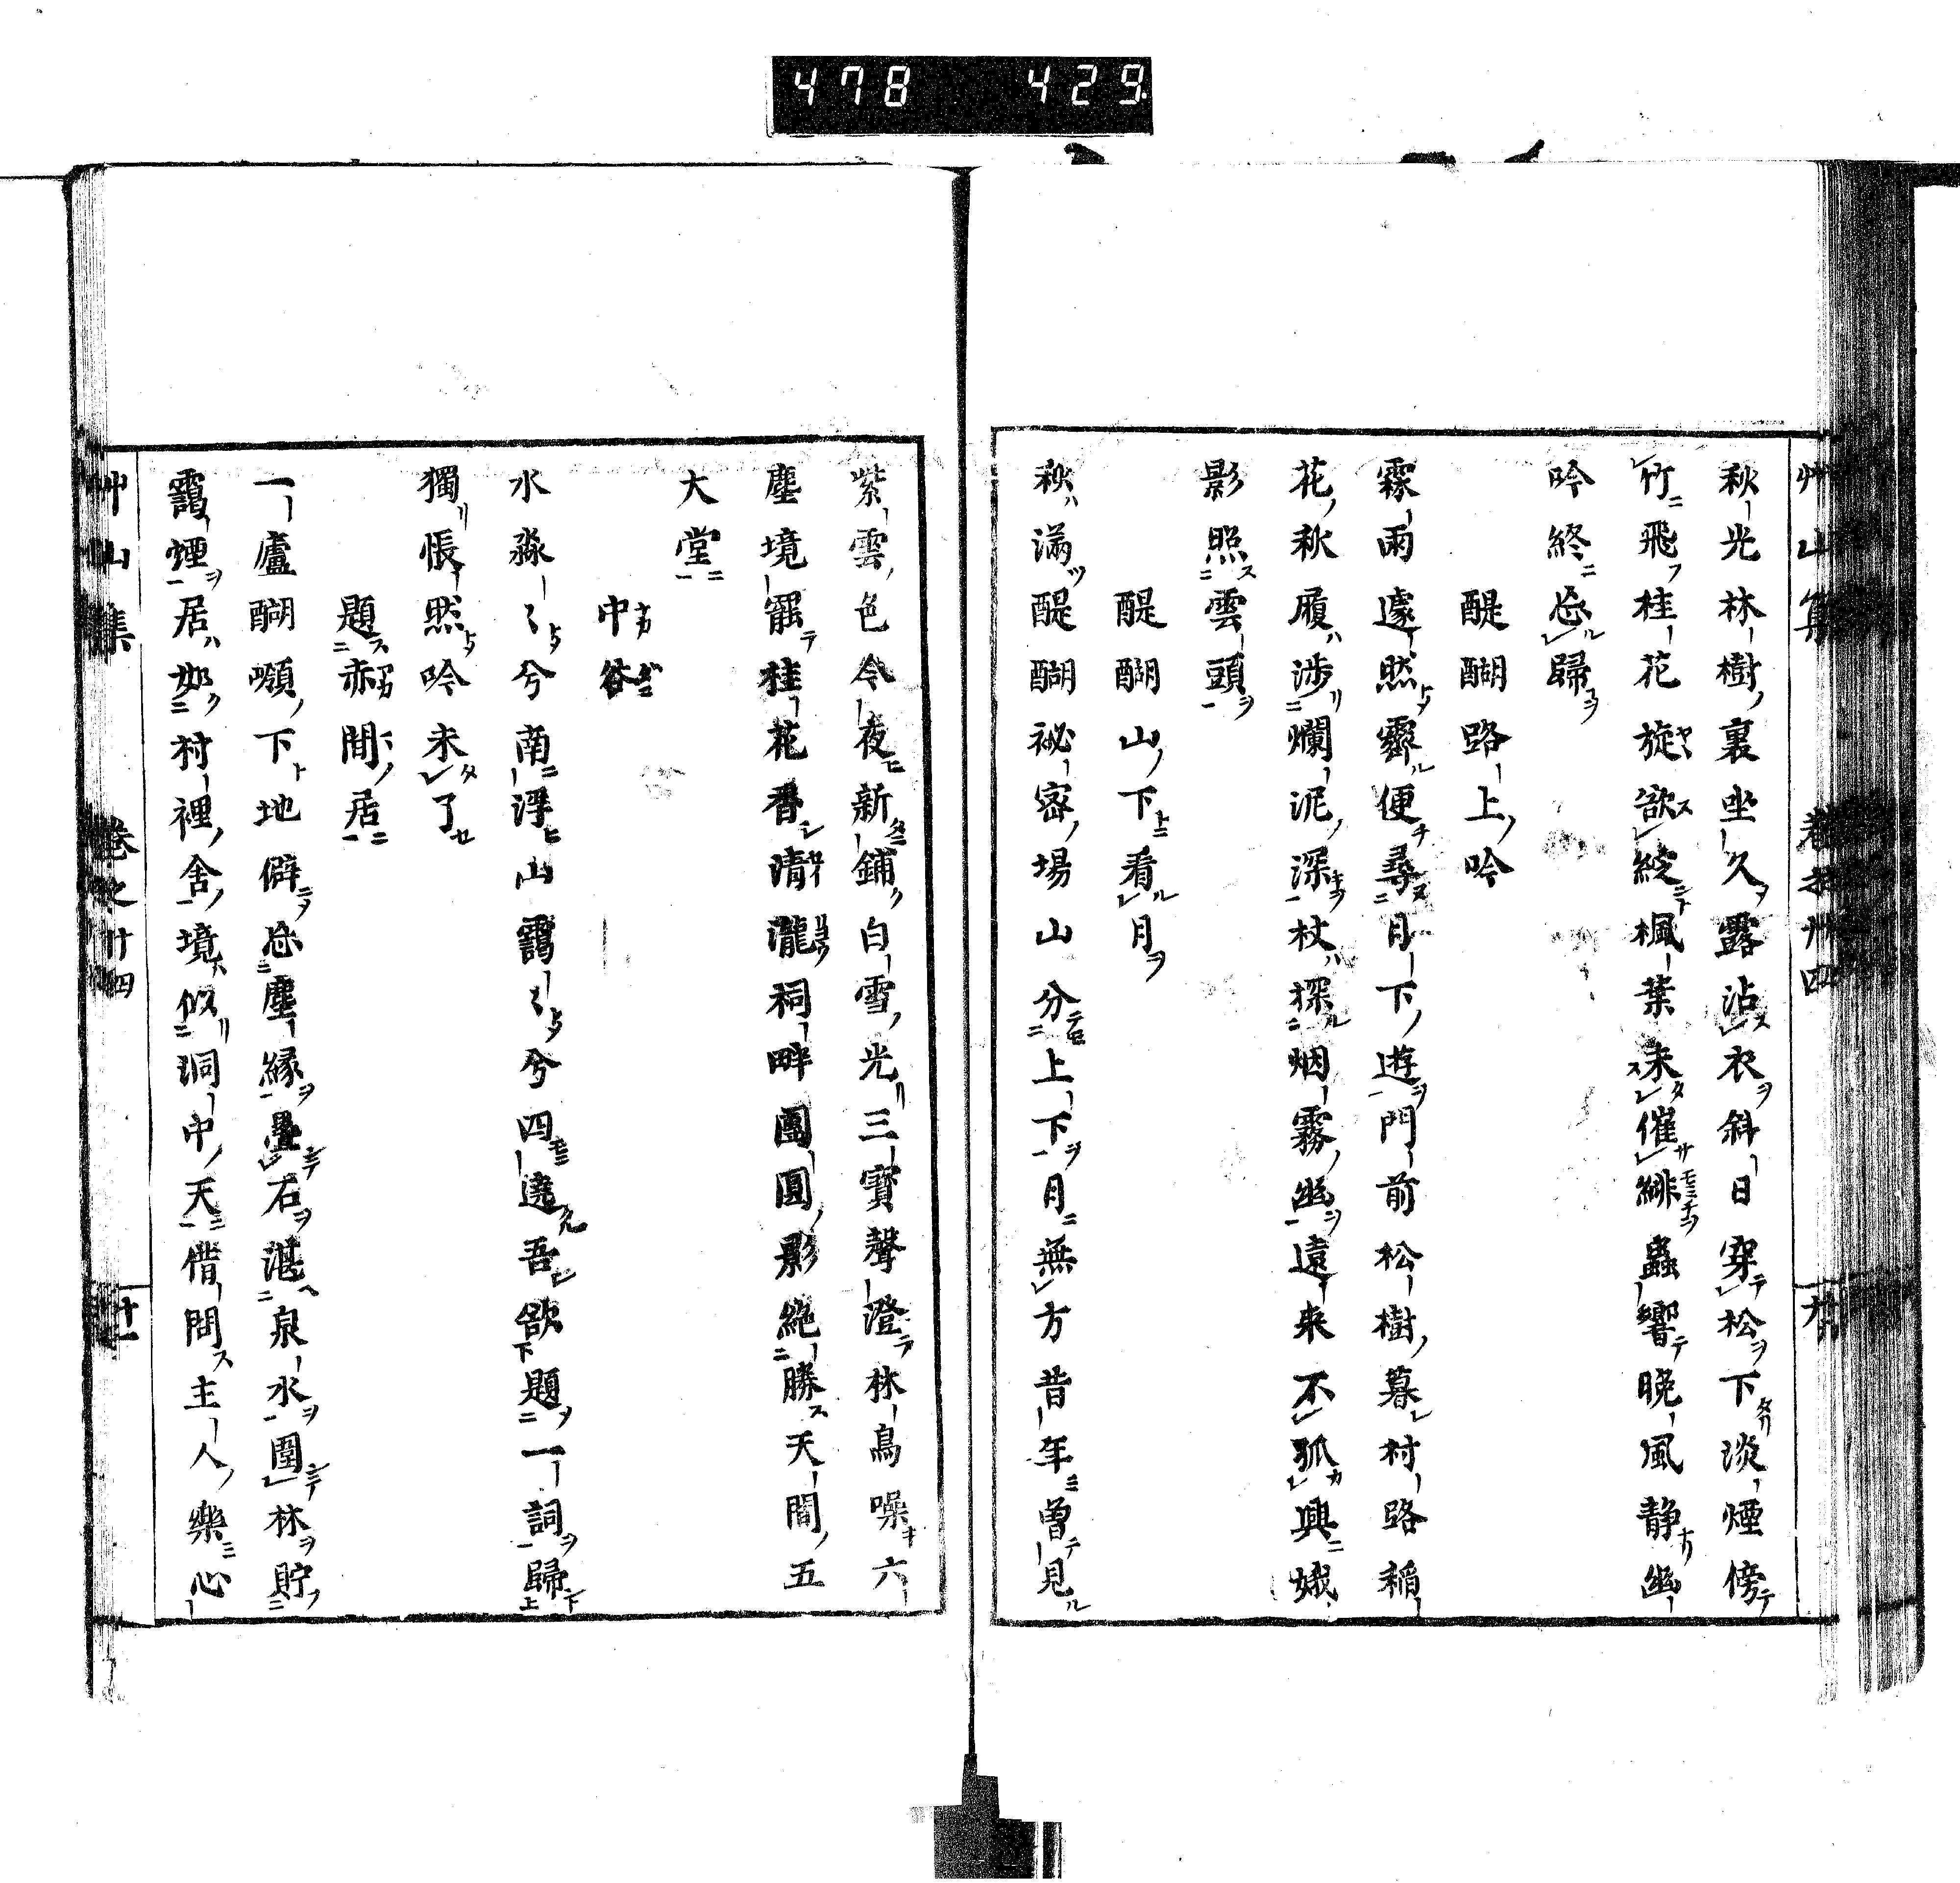 478 429
秋光林樹裏坐久露沾衣斜日穿松下淡煙傍
竹飛桂花旋欲綻楓葉未催緋蟲響晩風静幽
吟終忘歸
醍醐路上吟
霖雨遽然霽便尋月下遊門前松樹暮村路稲
花秋履渉爛泥深杖探烟霧幽遠来不孤興娥
影照雲頭
醍醐山下看月
秋滿醍醐祕密場山分上下月無方昔年曽見
紫雲色今夜新鋪白雪光三寶聲澄林鳥噪六
塵境罷桂花香清瀧祠畔團圓影絶勝天間五
大堂
中谷
水淼〻兮南浮山靄〻兮四遶吾欲題一詞歸
獨悵然吟未了
題赤間居
一廬醐嶺下地僻忘塵縁疊石湛泉水圍林貯
靄煙居如村裡舎境似洞中天借問主人樂心
艸山集 卷之廿四 廿一